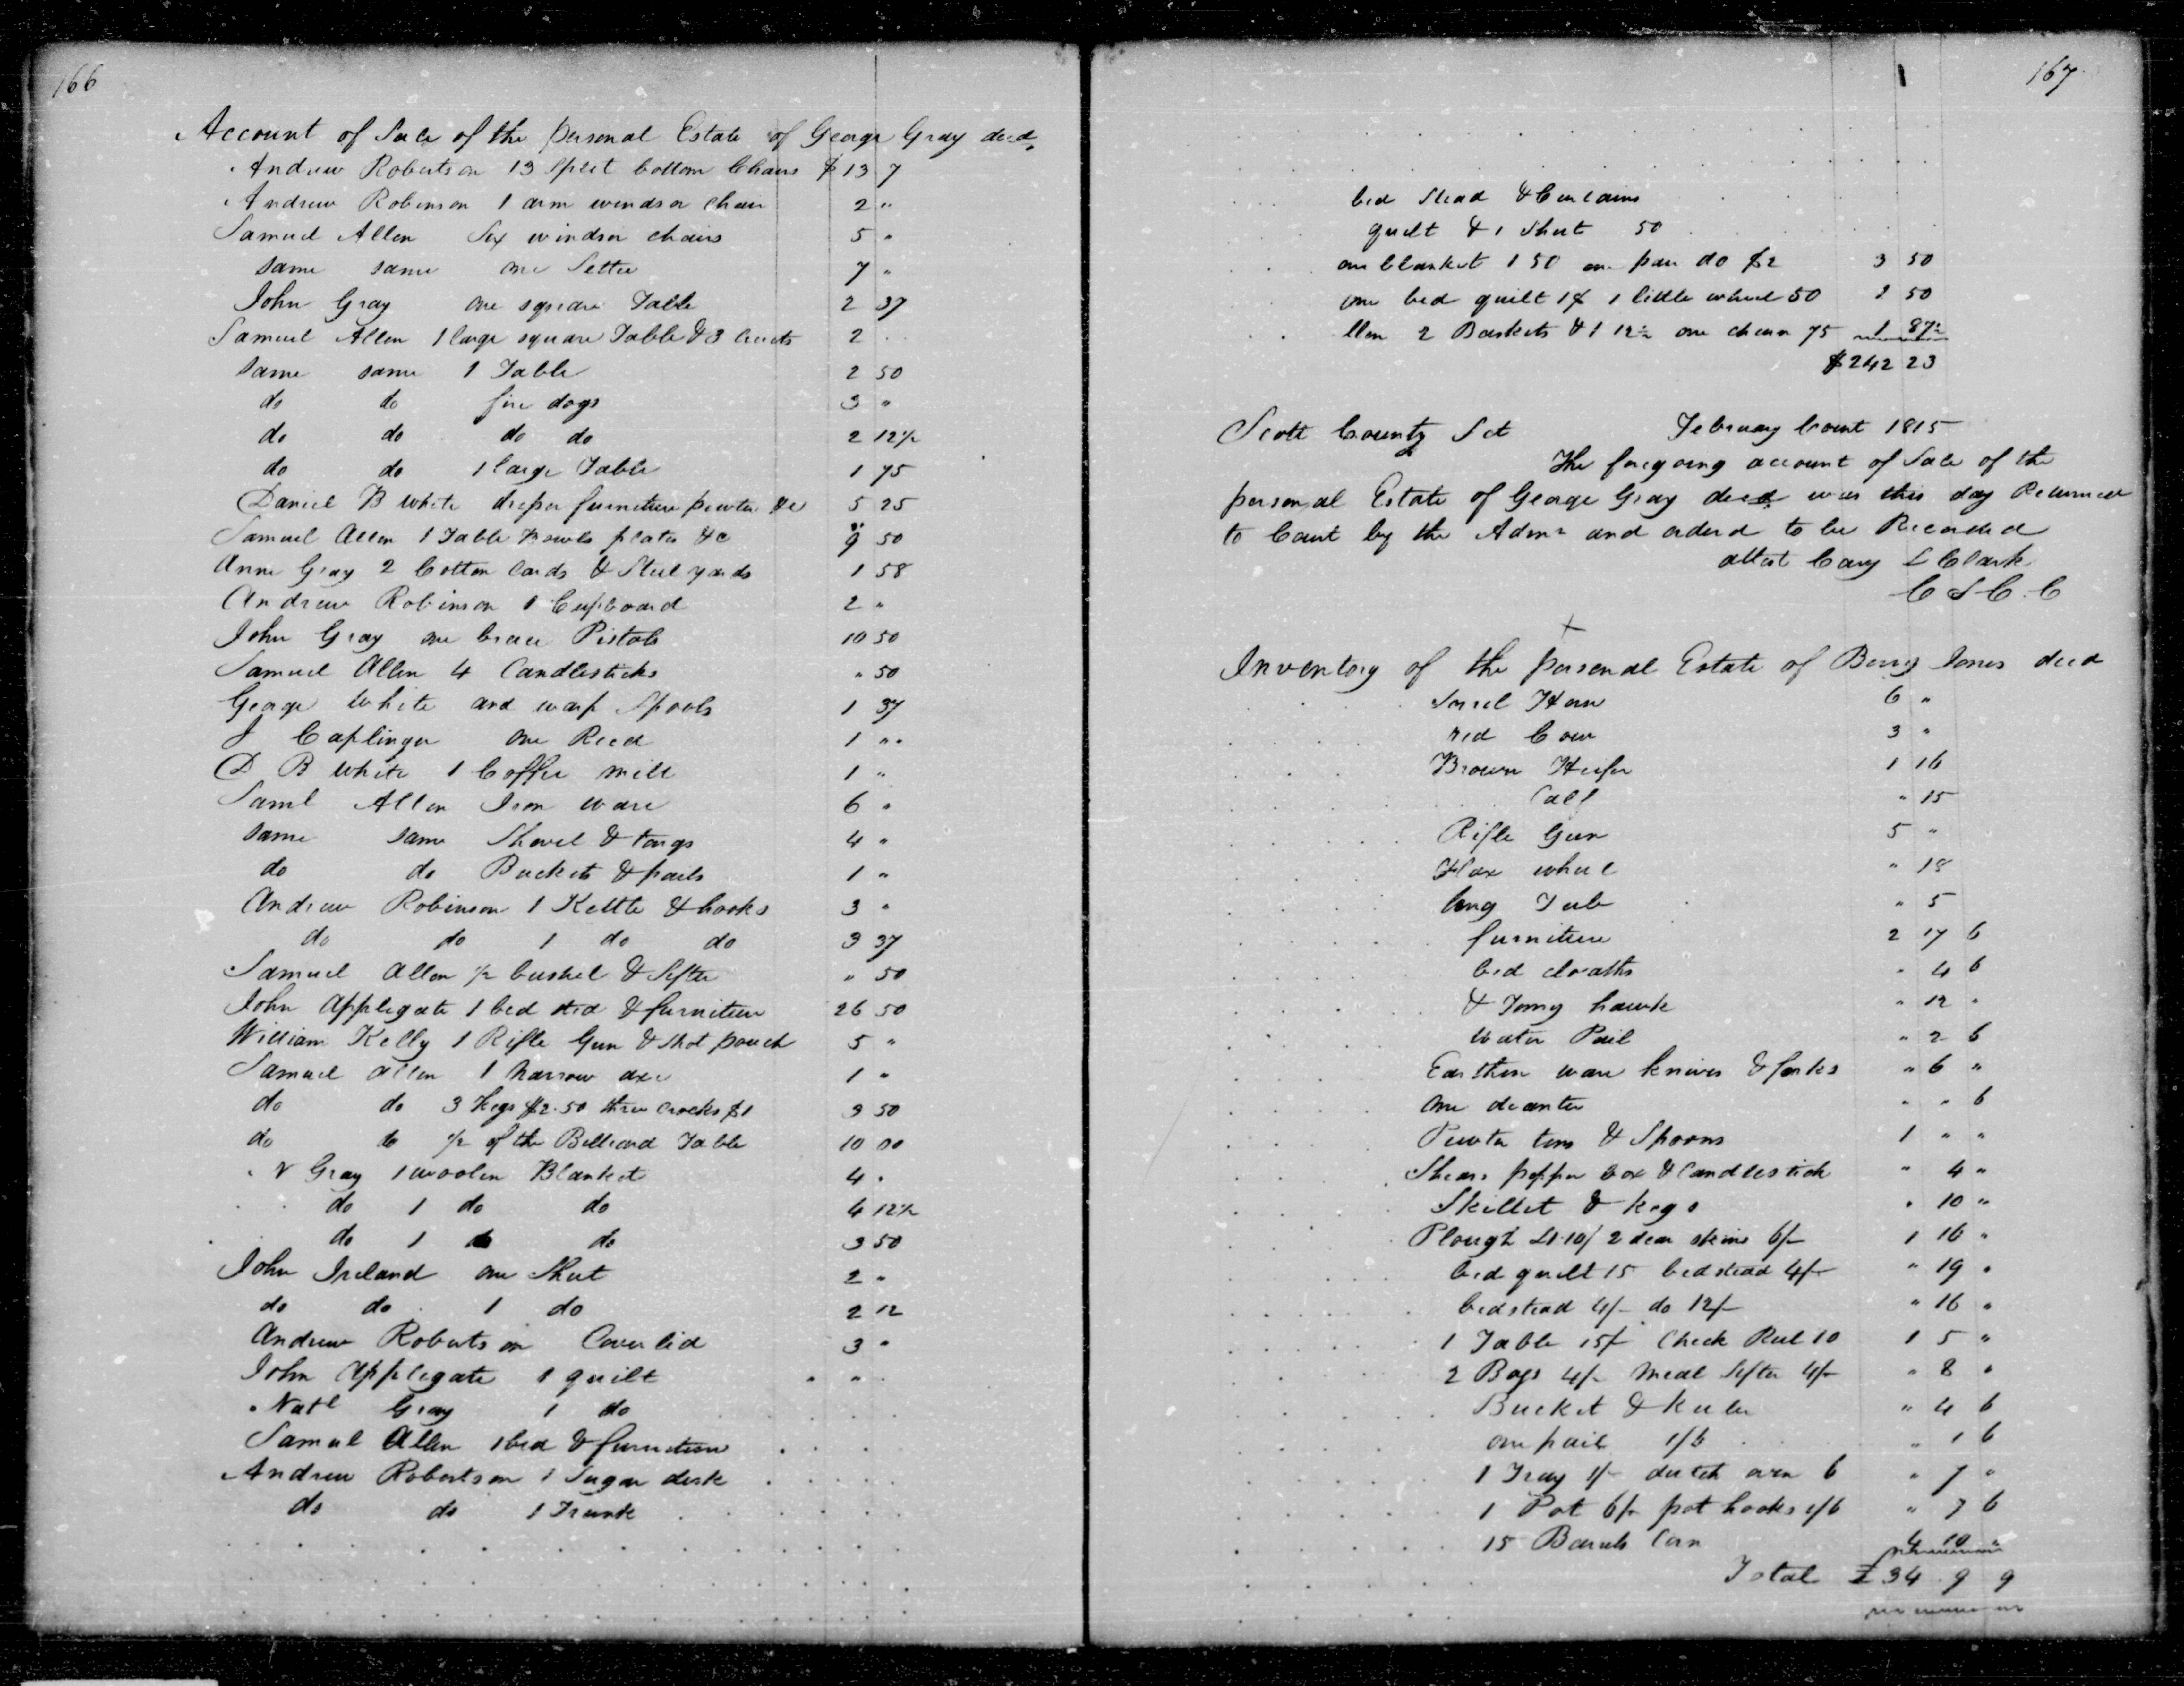 166
Account of Sale of the personal Estate of George Gray decd,
Andrew Robertson 13 split bottom Chairs $ 13 7
Andrew Robinson 1 arm windsor chair 2 "
Samuel Allen Six windsor chairs 5 "
same same one Settee 7 "
John Gray one square Table 2 37
Samuel Allen 1 large square Table & 3 2
same same 1 Table 2 50
do do fire dogs 3 "
do do do do 2 12½
do do 1 large Table 1 75
Daniel B White furniture pewter &c 5 25
Samuel Allen 1 Table Bowls plates &c 9 50
Anne Gray 2 Cotton Cards & Steel yards 1 58
Andrew Robinson 1 Cupboard 2 "
John Gray one brace Pistols 10 50
Samuel Allen 4 Candlesticks " 50
George White and warp Spools 1 37
J Caplinger one Reed 1 "
D B White 1 Coffee mill 1 "
Saml Allen Iron ware 6 "
same same Shovel & tongs 4 "
do do Buckets & pails 1 "
Andrew Robinson 1 Kettle & hooks 3 "
do do 1 do do 3 37
Samuel Allen ½ bushel & Sifter " 50
John Applegate 1 bed sted & furniture 26 50
William Kelly 1 Rifle Gun & Shot pouch 5 "
Samuel Allen 1 narrow axe 1 "
do do 3 Kegs $2.50 three Crocks $1 3 50
do do ½ of the Billiard Table 10 00
N Gray 1 woolen Blanket 4 "
do 1 do do 4 12½
do 1 do do 3 50
John Ireland one Sheet 2 "
do do 1 do 2 12
Andrew Robertson Coverlid 3 "
John Applegate 1 quilt "
Natl Gray 1 do
Samul Allen 1 bed & furniture
Andrew Robertson 1 Sugar desk
do do 1 Trunk
167
bed Stead & Curtains
quilt & 1 Sheet 50
one blanket 1 50 one pair do $2 3 50
one bed quilt 1$ 1 little wheel 50 1 50
llen 2 Baskets & 1 12½ one churn 75 1 87½
$242 23
Scott County Sct February Court 1815
The foregoing account of Sale of the
personal Estate of George Gray decd was this day Returned
to Court by the Admr and ordrd to be Recorded
attest Cary L Clark
C S C. C
Inventory of the personal Estate of Berry Jones decd
Sorrel Horse 6 "
red Cow 3 "
Brown Heifer 1 16
Calf " 15
Rifle Gun 5 "
Flax wheel " 18
Tub " 5
furniture 2 17 6
bed cloaths " 4 6
& Tomy hawk " 12 "
Water Pail " 2 6
Earthen ware knives & forks " 6 "
one decanter " " 6
Pewter tins & Spoons 1 " "
Shears pepper box & Candlestick " 4 "
Skillet & kegs " 10 "
Plough £1.10/ 2 dear skins 6/- 1 16 "
bed quilt 15 bedstead 4/- " 19 "
bedstead 4/- do 12/- " 16 "
1 Table 15/- Check Reel 10 1 5 "
2 Bags 4/- Meal Sifter 4/- " 8 "
Bucket & Keeler " 4 6
one pail 1/6 " 1 6
1 Tray 1/- dutch oven 6 " 7 "
1 Pot 6/- pot hooks 1/6 " 7 6
15 Barrels Corn 4 10 "
Total £ 34 . 9 9